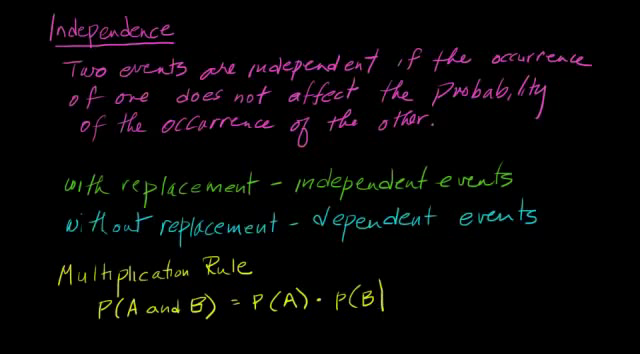 Independence
Two events are independent if the occurrence
of one does not affect the probability
of the occurrence of the other.
with replacement - independent events
without replacement - dependent events
Multiplication Rule
P(A and B) = P(A) · P(B|